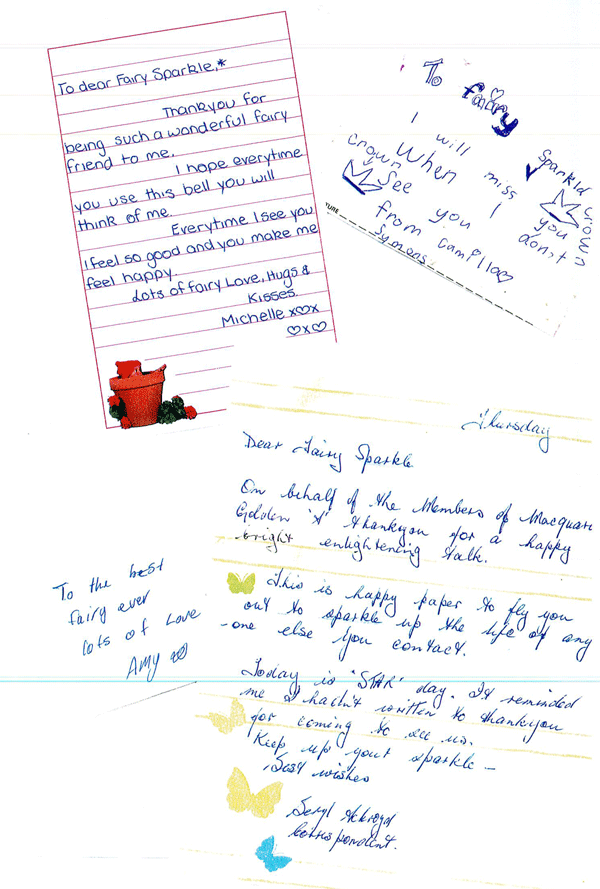 To dear Fairy Sparkle,*
Thankyou for
being such a wonderful fairy
friend to me.
I hope everytime
you use this bell you will
think of me.
Everytime I see you
I feel so good and you make me
feel happy.
Lots of fairy Love, Hugs &
Kisses.
Michelle x♡x
♡x♡
To fairy
Sparkld
I will miss you
When I don,t
See you
crown
crown
from Camilla♡
Symons
TURE
To the best
fairy ever
lots of Love
Amy
Thursday
Dear Fairy Sparkle
On behalf of the Members of Macquari
Golden 'A' thankyou for a happy
bright enlightening talk.
This is happy paper to fly you
out to sparkle up the life of any
-one else you contact.
Today is 'STAR' day. It reminded
me I hadn't written to thankyou
for coming to see us.
Keep up your sparkle –
Best wishes
Beryl Ackroyd
Correspondent.